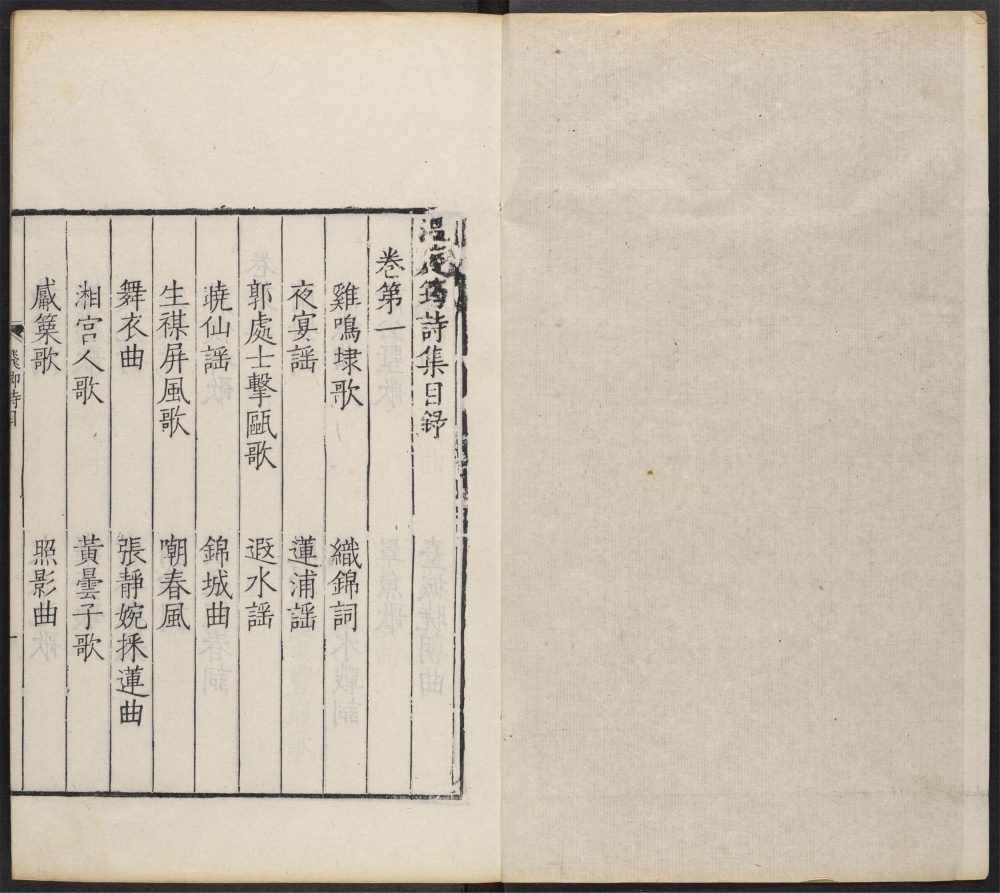 溫庭筠詩集目録
卷第一
雞鳴埭歌 織錦詞
夜宴謡 蓮浦謡
郭處士擊甌歌 遐水謡
曉仙謡 錦城曲
生禖屏風歌 嘲春風
舞衣曲 張靜婉採蓮曲
湘宫人歌 黃曇子歌
觱篥歌 照影曲